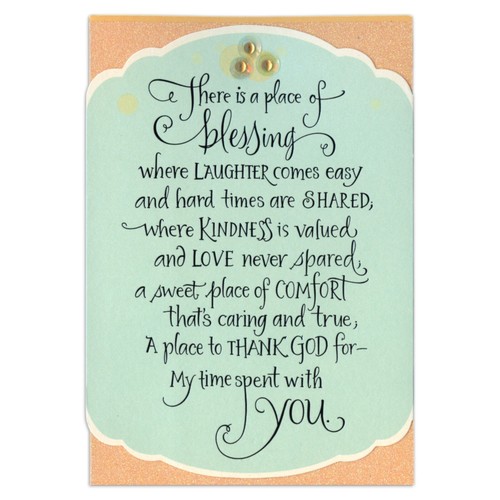 There is a place of
blessing
where LAUGHTER comes easy
and hard times are SHARED;
where KINDNESS is valued
and LOVE never spared;
a sweet place of COMFORT
that's caring and true;
A place to THANK GOD for—
My time spent with
YOU.